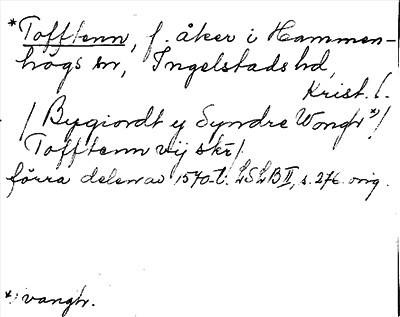 *Tofftenn, f. åker i Hammen-
högs sn, Ingelstads hd,
Krist. l.
/ Bygiordt y Syndre Wongr *)/
Tofftenn vij skr/
förra delen av 1570-t. LSLB II, s. 276. orig.
*) vangr.